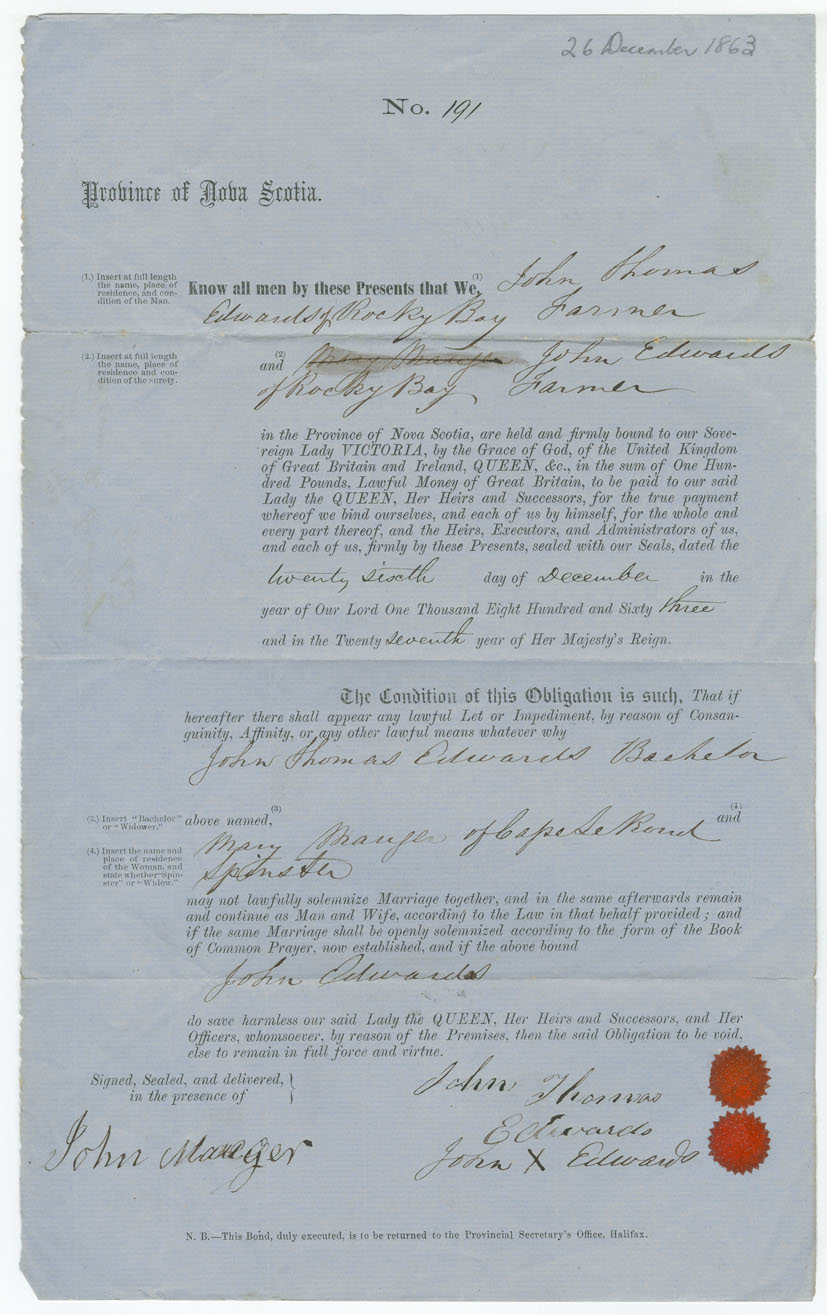 26 December 1863
No. 191
Province of Nova Scotia.
(1.) Insert at full length
the name, place of
residence, and con-
dition of the Man.
Know all men by these Presents that We, (1) John Thomas
Edwards of Rocky Bay Farmer
(2.) Insert at full length
the name, place of
residence and con-
dition of the surety.
and (2) Mary Mauger John Edwards
of Rocky Bay Farmer
in the Province of Nova Scotia, are held and firmly bound to our Sove-
reign Lady VICTORIA, by the Grace of God, of the United Kingdom
of Great Britain and Ireland, QUEEN, &c., in the sum of One Hun-
dred Pounds, Lawful Money of Great Britain, to be paid to our said
Lady the QUEEN, Her Heirs and Successors, for the true payment
whereof we bind ourselves, and each of us by himself, for the whole and
every part thereof, and the Heirs, Executors, and Administrators of us,
and each of us, firmly by these Presents, sealed with our Seals, dated the
twenty sixth day of December in the
year of Our Lord One Thousand Eight Hundred and Sixty three
and in the Twenty seventh year of Her Majesty's Reign.
The Condition of this Obligation is such, That if
hereafter there shall appear any lawful Let or Impediment, by reason of Consan-
guinity, Affinity, or any other lawful means whatever why
John Thomas Edwards Bachelor
(3.) Insert "Bachelor"
or "Widower."
above named, (3) and (4)
(4.) Insert the name and
place of residence
of the Woman, and
state whether "Spin-
ster" or "Widow."
Mary Mauger of Cape Le Rond
Spinster
may not lawfully solemnize Marriage together, and in the same afterwards remain
and continue as Man and Wife, according to the Law in that behalf provided; and
if the same Marriage shall be openly solemnized according to the form of the Book
of Common Prayer, now established, and if the above bound
John Edwards
do save harmless our said Lady the QUEEN, Her Heirs and Successors, and Her
Officers, whomsoever, by reason of the Premises, then the said Obligation to be void,
else to remain in full force and virtue.
Signed, Sealed, and delivered,
in the presence of
John Thomas
Edwards
John Mauger
John X Edwards
N. B.—This Bond, duly executed, is to be returned to the Provincial Secretary's Office, Halifax.